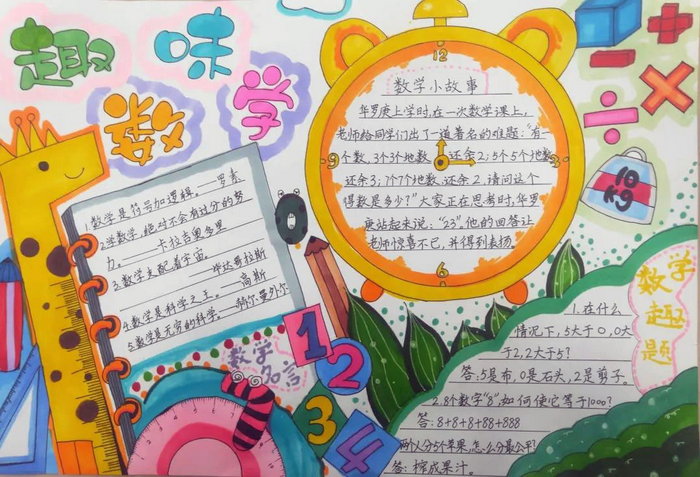 趣味
数学
数学小故事
12
9
3
6
华罗庚上学时,在一次数学课上,
老师给同学们出了一道著名的难题:"有一
个数,3个3个地数,还余2;5个5个地数,
还余3;7个7个地数,还余2,请问这个
得数是多少?"大家正在思考时,华罗
庚站起来说:"23。"他的回答让
老师惊喜不已,并得到表扬
1.数学是符号加逻辑。——罗素
2.学数学,绝对不会有过分的努
力。——卡拉吉奥多里
3.数学支配着宇宙。
——毕达哥拉斯
4.数学是科学之王。——高斯
5.数学是无穷的科学。——赫尔曼外尔
数学
名言
1
2
3
4
10
KG
数学
趣
题
1.在什么
情况下,5大于0,0大
于2,2大于5?
答:5是布,0是石头,2是剪子。
2.8个数字"8",如何使它等于1000?
答:8+8+8+88+888
两个人分5个苹果,怎么分最公平?
答:榨成果汁。